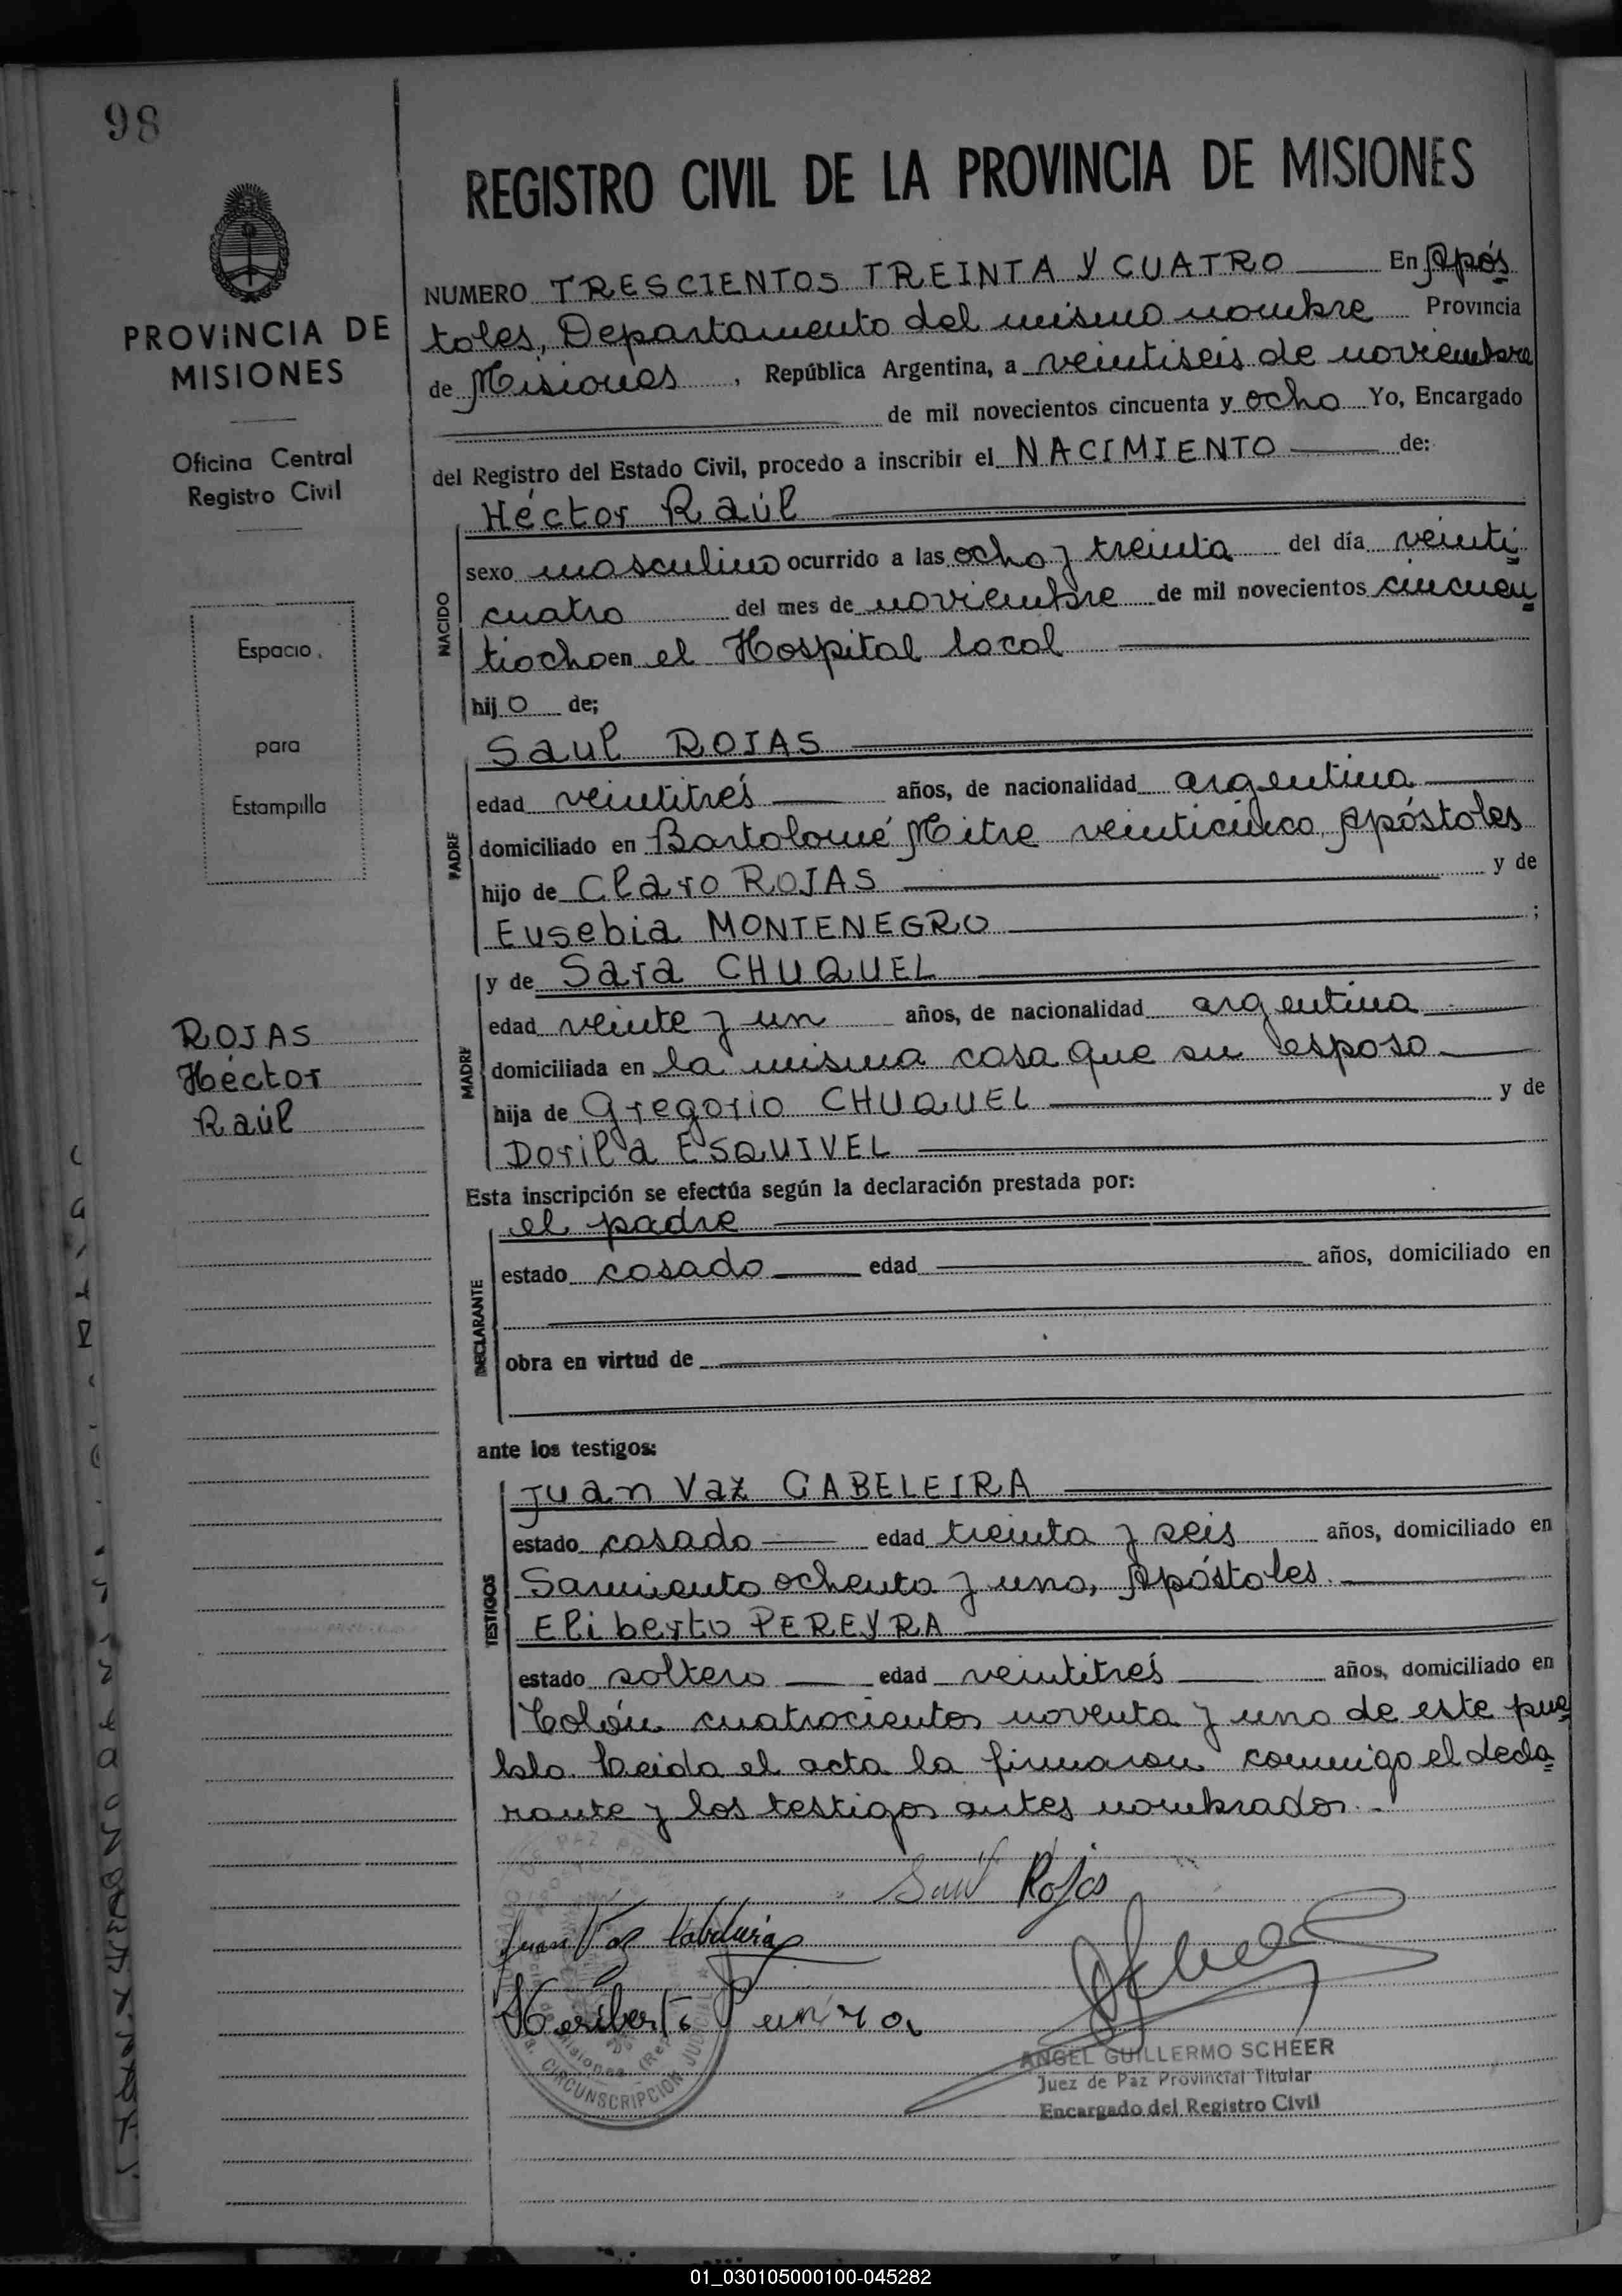 98
PROVINCIA DE
MISIONES
Oficina Central
Registro Civil
Espacio
para
Estampilla
ROJAS
Héctor
Raúl
REGISTRO CIVIL DE LA PROVINCIA DE MISIONES
NUMERO TRESCIENTOS TREINTA Y CUATRO En Após
toles, Departamento del mismo nombre Provincia
de Misiones, República Argentina, a veintiseis de noviembre
de mil novecientos cincuenta y ocho Yo, Encargado
del Registro del Estado Civil, procedo a inscribir el NACIMIENTO de:
NACIDO
Héctor Raúl
sexo masculino ocurrido a las ocho y treinta del día veinti
cuatro del mes de noviembre de mil novecientos cincuen
tiocho en el Hospital local
hijo de;
PADRE
Saul ROJAS
edad veintitrés años, de nacionalidad argentina
domiciliado en Bartolomé Mitre veinticinco, Apóstoles
hijo de Claro ROJAS y de
Eusebia MONTENEGRO ;
MADRE
y de Sara CHUQUEL
edad veinte y un años, de nacionalidad argentina
domiciliada en la misma casa que su esposo
hija de Gregorio CHUQUEL y de
Dorila ESQUIVEL
Esta inscripción se efectúa según la declaración prestada por:
DECLARANTE
el padre
estado casado edad años, domiciliado en
obra en virtud de
ante los testigos:
TESTIGOS
Juan Vaz CABELEIRA
estado casado edad treinta y seis años, domiciliado en
Sarmiento ochenta y uno, Apóstoles
Eliberto PEREYRA
estado soltero edad veintitrés años, domiciliado en
Colón cuatrocientos noventa y uno de este pue
blo. Leida el acta la firmaron conmigo el decla
rante y los testigos antes nombrados.-
Saul Rojas
Juan Vaz
Heriberto
CIRCUNSCRIPCION JUDICIAL
ANGEL GUILLERMO SCHEER
Juez de Paz Provincial Titular
Encargado del Registro Civil
01_030105000100-045282